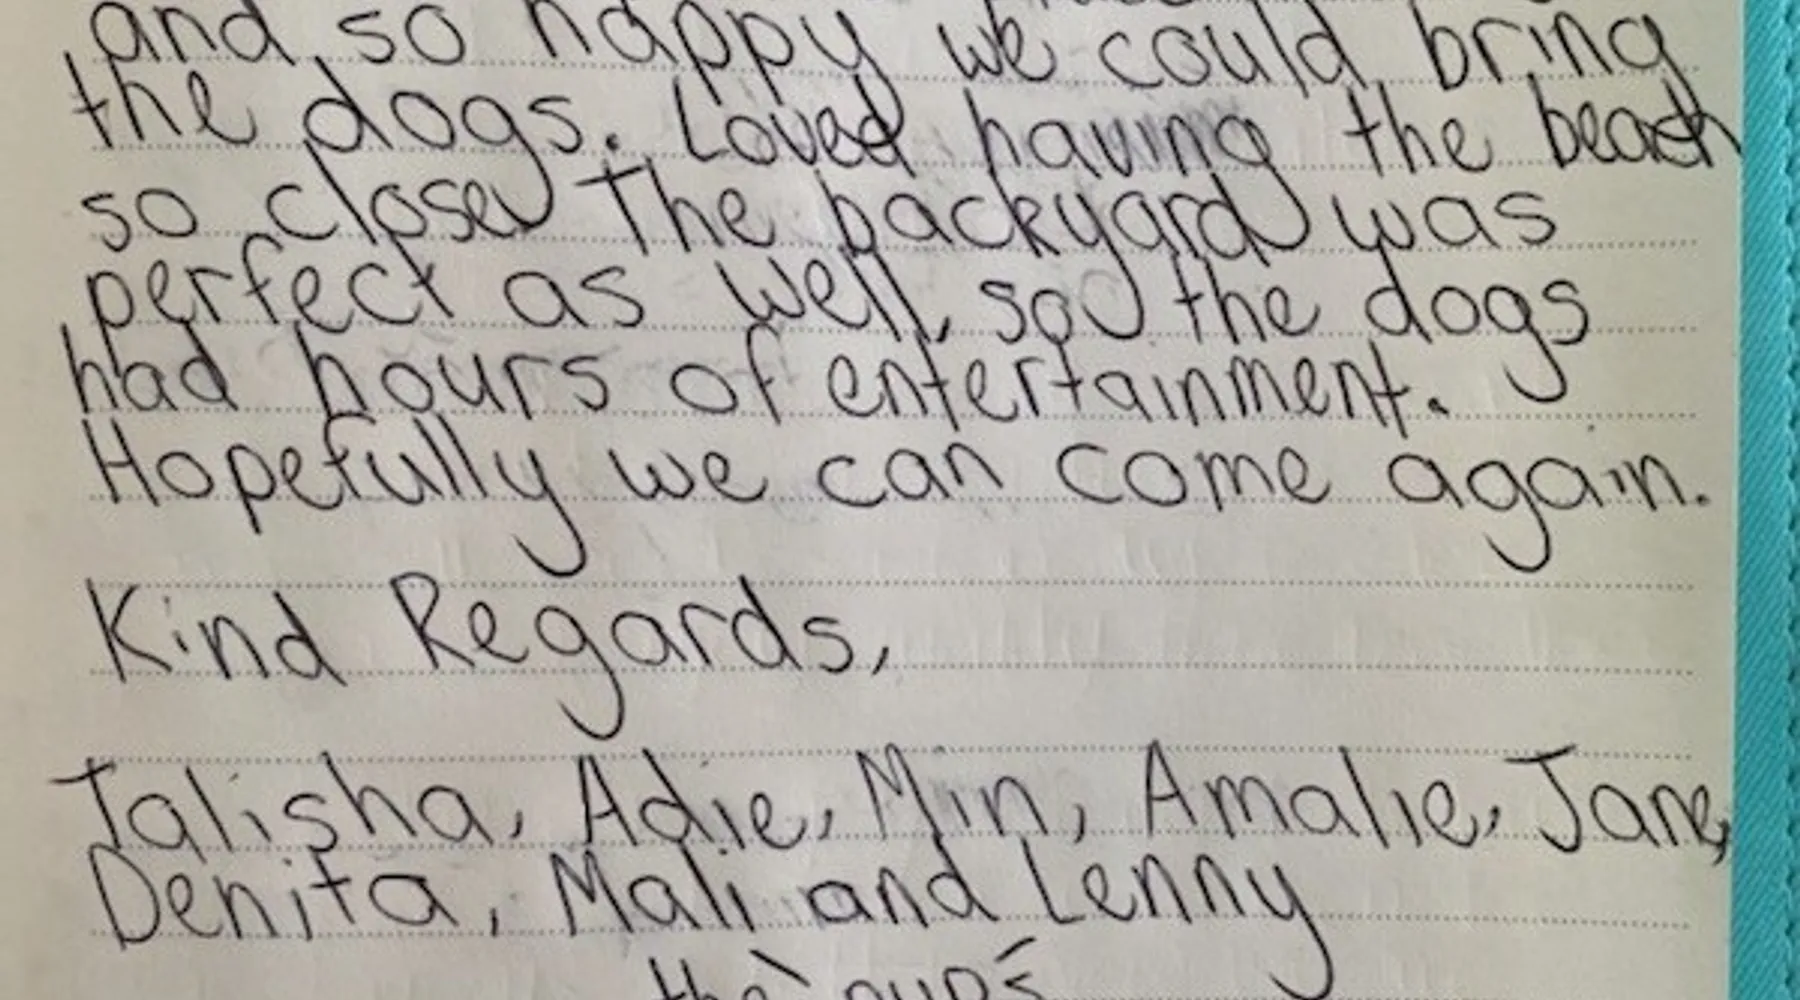 and so happy we could bring
the dogs. Loved having the beach
so close. The backyard was
perfect as well, so the dogs
had hours of entertainment.
Hopefully we can come again.
Kind Regards,
Talisha, Adie, Min, Amalie, Jane,
Denita, Mali and Lenny
the pups